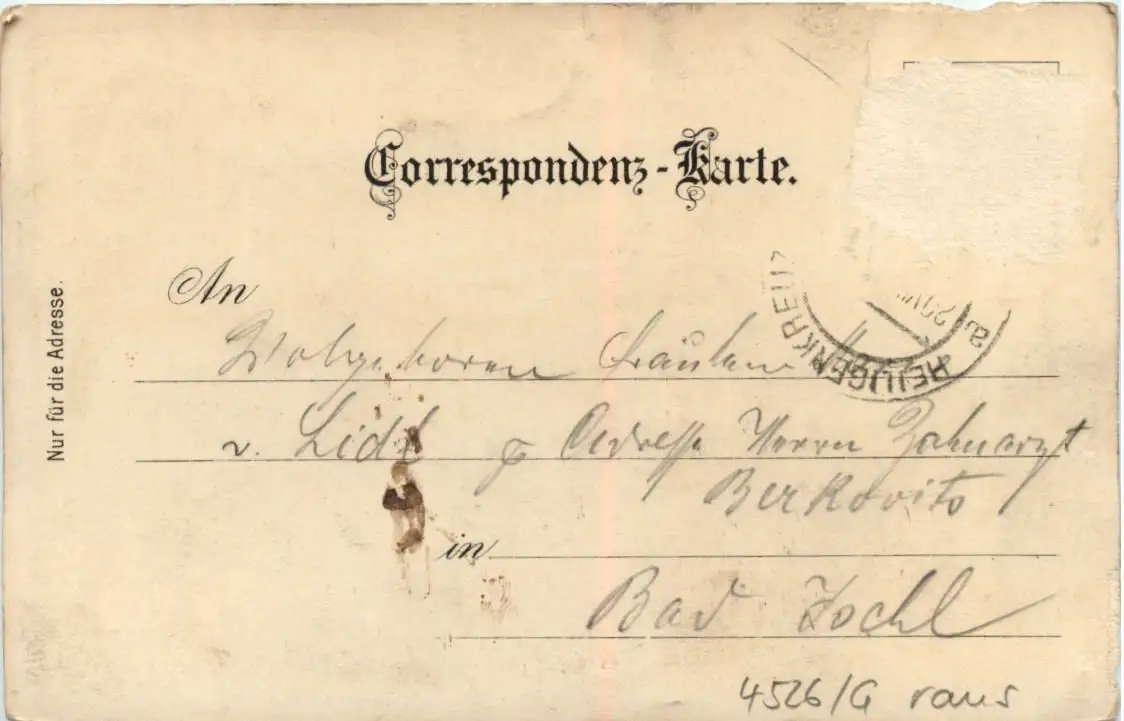 Correspondenz-Karte.
Nur für die Adresse.
An
HEILIGENKREUZ
20 VII
a
Wolgeboren Fräulein
v. Lidl p Adresse Herrn Zahnarzt
Berkovits
in
Bad Ischl
4526/G raus